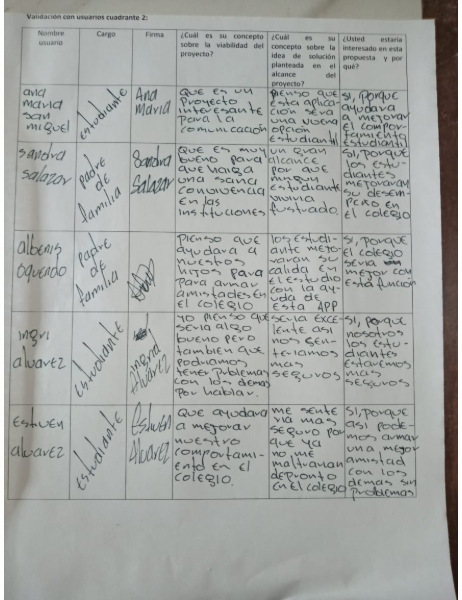 Validación con usuarios cuadrante 2:
Nombre usuario
Cargo
Firma
¿Cuál es su concepto sobre la viabilidad del proyecto?
¿Cuál es su concepto sobre la idea de solución planteada en el alcance del proyecto?
¿Usted estaria interesado en esta propuesta y por qué?
ana
maria
san
miguel
Estudiante
Ana
Maria
que es un
proyecto
interesante
para la
comunicación
pienso que
esta aplica-
ción sera
una buena
opcion
Estudiantil
si, porque
ayudara
a mejorar
el compor-
tamiento
Estudiantil
sandra
salazar
padre
de
familia
Sandra
Salazar
que es muy
bueno para
que haiga
una sana
convivencia
En las
instituciones
un gran
alcance
por que
ningun
Estudiante
viviria
fustrado.
si, porque
los estu-
diantes
mejoraran
su desem-
peño en
el colegio
albenis
oquendo
padre
de
familia
pienso que
ayudara a
nuestros
hijos para
para armar
amistades en
el colegio
los Estudi-
ante mejo-
raran su
calida en
el estudio
con la ayu-
da de
esta APP
si, porque
el colegio
seria
mejor con
esta función
ingri
alvarez
Estudiante
Ingrid
Alvarez
yo pienso que
seria algo
bueno pero
tambien que
podriamos
tener problemas
con los demas
por hablar.
seria exce-
lente asi
nos sen-
teriamos
mas
seguros
si, porque
nosotros
los estu-
diantes
estaremos
mas
seguros
Estiven
alvarez
Estudiante
Estiven
Alvarez
que ayudara
a mejorar
nuestro
comportami-
ento en el
colegio.
me sente
ria mas
seguro por
que ya
no me
maltratarian
depronto
en el colegio
si, porque
asi pode-
mos armar
una mejor
amistad
con los
demas sin
problemas